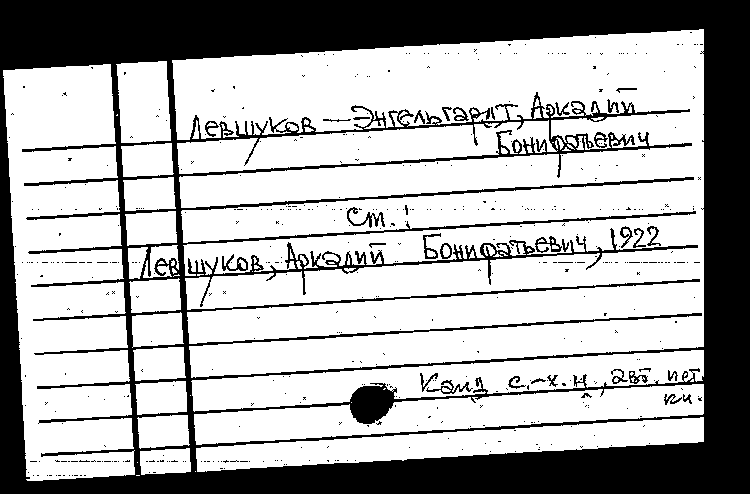 Левшуков — Энгельгардт, Аркадий
Бонифатьевич
См.:
Левшуков, Аркадий Бонифатьевич, 1922
Канд с.-х. н, авт. пет.
кн.